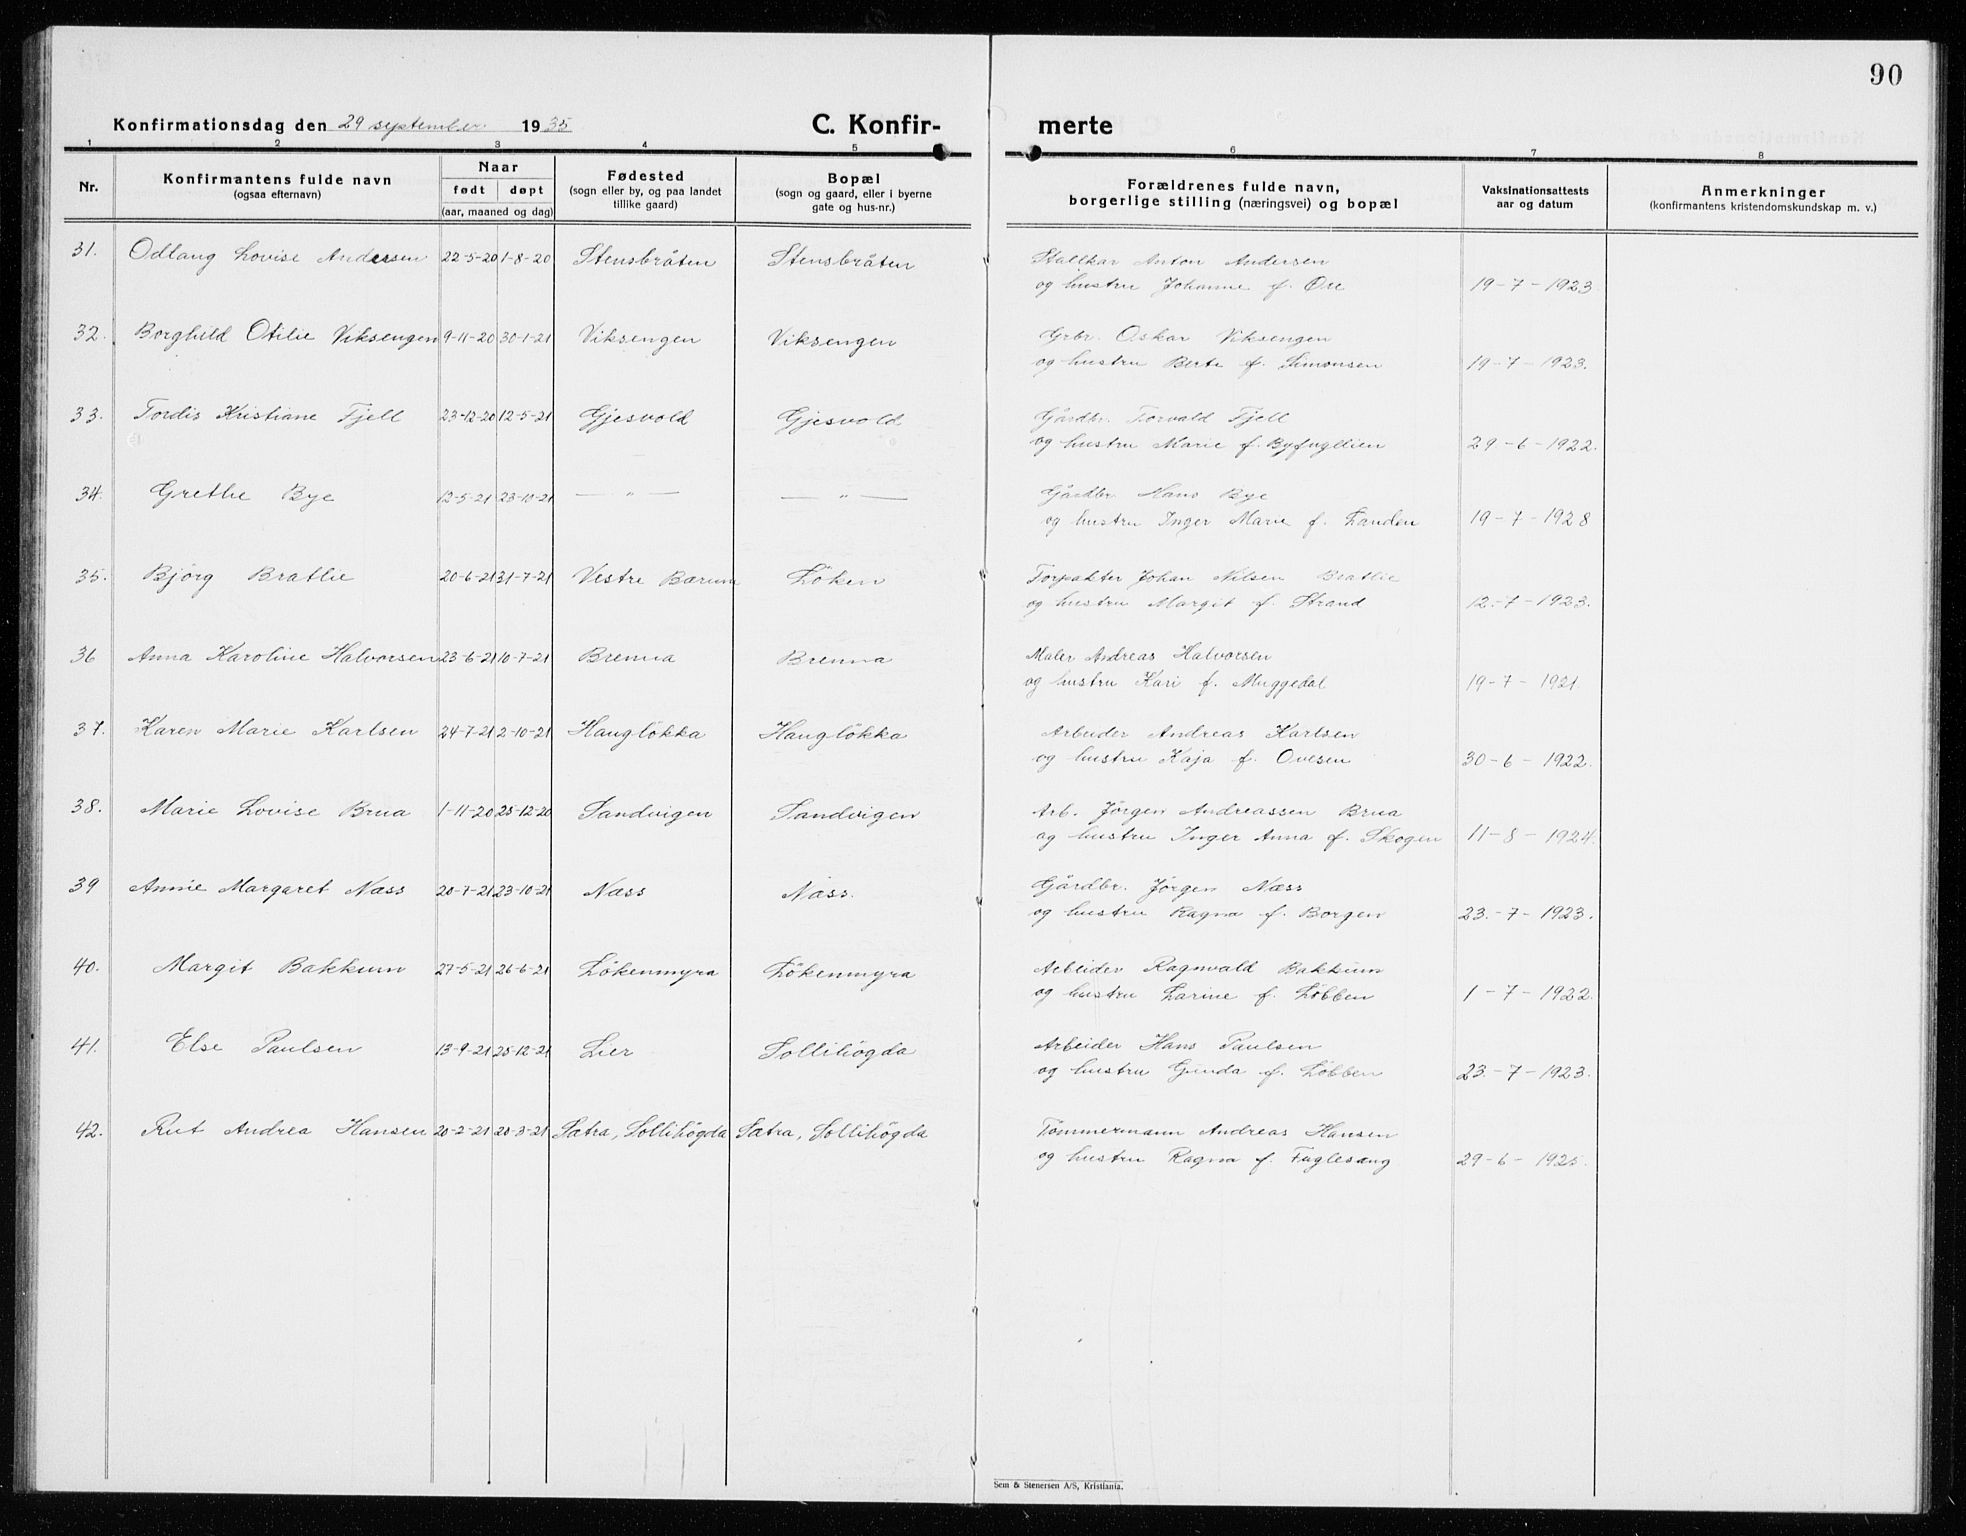 90
Konfirmationsdag den 29 september 1935 C. Konfir- merte
1 2 3 4 5 6 7 8
Nr. Konfirmantens fulde navn (ogsaa efternavn) Naar født døpt (aar, maaned og dag) Fødested (sogn eller by, og paa landet tillike gaard) Bopæl (sogn og gaard, eller i byerne gate og hus-nr.) Forældrenes fulde navn, borgerlige stilling (næringsvei) og bopæl Vaksinationsattests aar og datum Anmerkninger (konfirmantens kristendomskundskap m. v.)
31. Odlaug Lovise Andersen 22-5-20 1-8-20 Stensbråten Stensbråten Stallkar Anton Andersen
og hustru Johanne f. Øre 19-7-1923
32. Borghild Otilie Viksengen 9-11-20 30-1-21 Viksengen Viksengen Grbr. Oskar Viksengen
og hustru Berte f. Simonsen 19-7-1923.
33. Tordis Kristiane Fjell 23-12-20 12-5-21 Gjesvold Gjesvold Gårdbr. Torvald Fjell
og hustru Marie f. Byfuglien 29-6-1922.
34. Grethe Bye 12-5-21 23-10-21 — " — — " — Gårdbr. Hans Bye
og hustru Inger Marie f. Landen 19-7-1928
35. Bjørg Bratlie 20-6-21 31-7-21 Vestre Bærum Löken Forpakter Johan Nilsen Bratlie
og hustru Margit f. Strand 12.-7-1923.
36 Anna Karoline Halvorsen 23-6-21 10-7-21 Brenna Brenna Maler Andreas Halvorsen
og hustru Kari f. Muggedal 19-7-1921.
37. Karen Marie Karlsen 24-7-21 2-10-21 Hauglökka Hauglökka Arbeider Andreas Karlsen
og hustru Kaja f. Ovesen 30-6-1922.
38. Marie Lovise Brua 1-11-20 25-12-20 Sandvigen Sandvigen Arb. Jörgen Andreassen Brua
og hustru Inger Anna f. Skogen 11-8-1924.
39 Annie Margaret Næss 20-7-21 23-10-21 Næss Næss. Gårdbr. Jörgen Næss
og hustru Ragna f. Borgen 23.-7-1923.
40. Margit Bakkum 27-5-21 26-6-21 Lökenmyra Lökenmyra Arbeider Ragnvald Bakkum
og hustru Larine f. Löbben 1-7-1922.
41. Else Paulsen 13-9-21 25-12-21 Lier Sollihögda Arbeider Hans Paulsen
og hustru Gunda f. Löbben 23-7-1923.
42. Rut Andrea Hansen 20-2-21 20-3-21 Sætra, Sollihögda Sætra, Sollihögda Tömmermann Andreas Hansen
og hustru Ragna f. Fuglesang 29-6-1925.
Sem & Stenersen A/S, Kristiania.